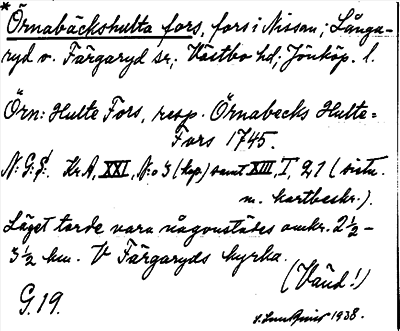 * Örnabäckshulta fors, fors i Nissan; Långa-
ryd o. Färgaryd sr; Västbo hd; Jönköp. l.
Örn: Hulte Fors, resp. Örnabecks Hulte=
Fors 1745.
N: G: Kr A, XXI, N:o 3 (kop) samt XIII, I, 21 (
m. kartbeskr.).
Läget torde vara någonstädes omkr. 2½-
3½ km. V Färgaryds kyrka.
(Vänd!)
G. 19.
1938.